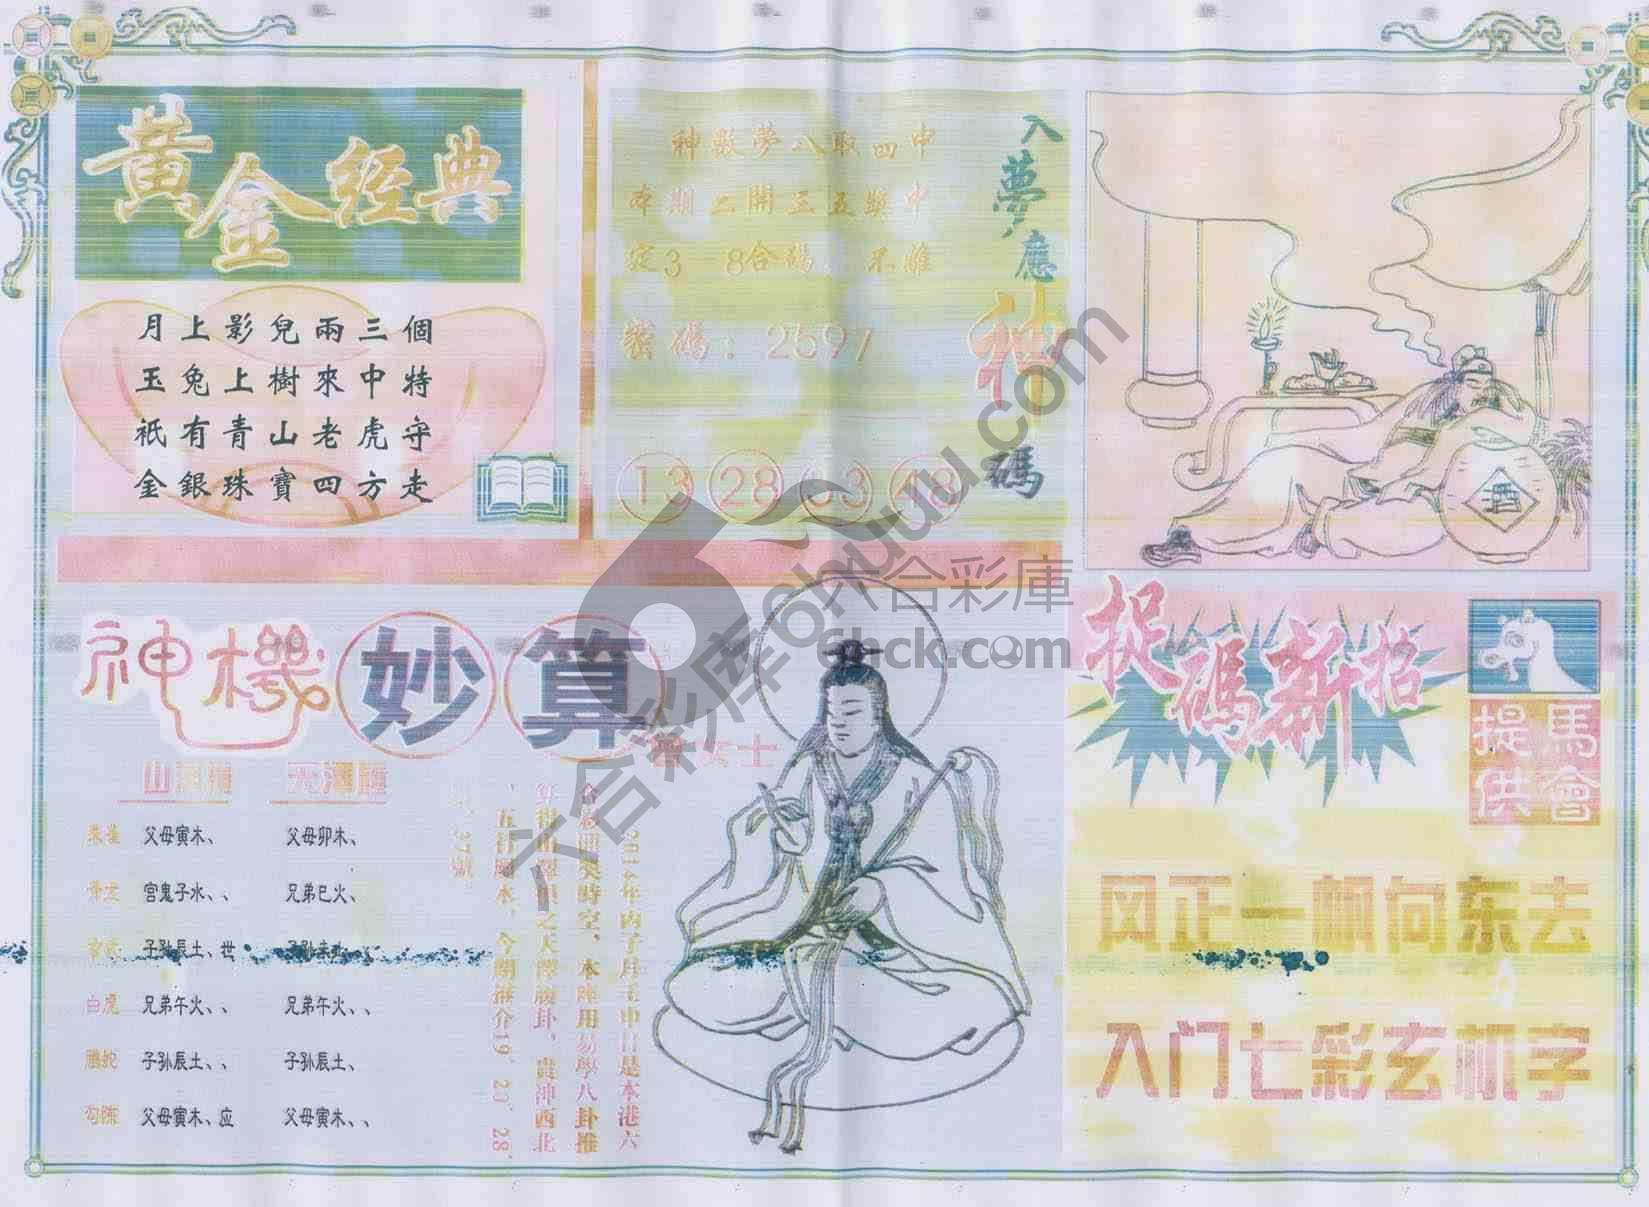 黃金經典
月上影兒兩三個
玉兔上樹來中特
祇有青山老虎守
金銀珠寶四方走
神數夢八取四中
本期二開三五獎中
定3-8合碼，不難
密碼：2597
入夢應神碼
13 28 33 48
酒
神機妙算
父母寅木、 父母卯木、
官鬼子水、、 兄弟巳火、
子孙辰土、世 子孙未土、、
白虎 兄弟午火、、 兄弟午火、、
騰蛇 子孙辰土、、 子孙辰土、
勾陈 父母寅木、应 父母寅木、、
2014年丙子月壬申日是本港六
合彩開獎時空，本座用易學八卦推
，五行屬水，今期推介19、20、28、
37號。
捉碼新招
馬會提供
风正一帆向东去
入门七彩玄机字
六合彩库 6huuu.com
六合彩庫
6hck.com